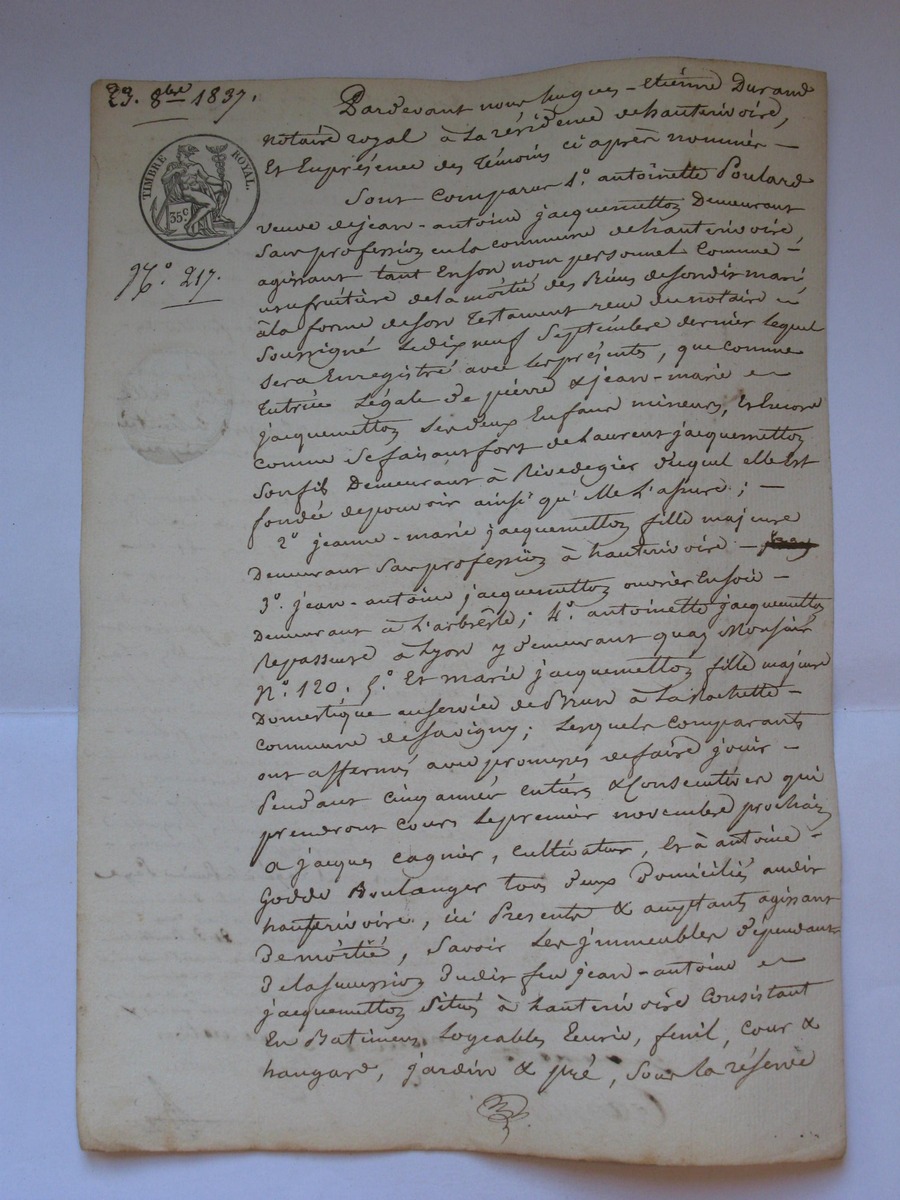 23. 8bre 1837.
TIMBRE ROYAL.
35c
No. 217.
Pardevant nous hugues-etiénne Durand
notaire royal à la résidence de hauterivoire,
Et Enprésence des Témoins ci après nommés —
Sont Comparus 1o. antoinette Poulard
veuve de jean-antoine jacquemetton Demeurant
Sans profession en la commune de hauterivoire,
agissant tant En son nom personnel Comme -
usufruitière de la moitié des Biens de son dit mari
à la forme de son Testament reçu du notaire
Soussigné Le dix neuf Septembre dernier lequel
Sera Enregistré avec les présentes, que comme
tutrice Légale de pierre & jean-marie
jacquemetton Ses deux Enfans mineurs, Et Encore
comme Se faisant fort de Laurent jacquemetton
Son fils Demeurant à Rivedegier duquel elle Est
fondée de pouvoir ainsi qu'elle L'assure; —
2o jeanne-marie jacquemetton fille majeure
Demeurant Sans profession à hauterivoire —
3o. jean-antoine jacquemetton ouvrier Ensoie -
Demeurant à L'arbrêsle; 4o. antoinette jacquemetton
Repasseuse à Lyon y demeurant quay Monsieur
No. 120. 5o. Et marie jacquemetton fille majeure
Domestique au service de Brun à La Rochette -
Commune de Savigny; Lesquels comparants
ont affermés avec promesses de faire jouir -
Pendant Cinq années Entières & Consécutives qui
prendront Cours Le premier novembre prochain
a jacques cagnier, Cultivateur, Et à antoine -
Godde Boulanger tous deux Domiciliés audit
hauterivoire, ici Présents & acceptants agissant
De moitié, Savoir Les jmmeubles Dépendants
De la Succession dudit feu jean-antoine
jacquemetton Situés à hauterivoire Consistant
En Batiments Logeables Ecurie, fenil, Cour &
hangard, jardin & pré, Sous la réserve